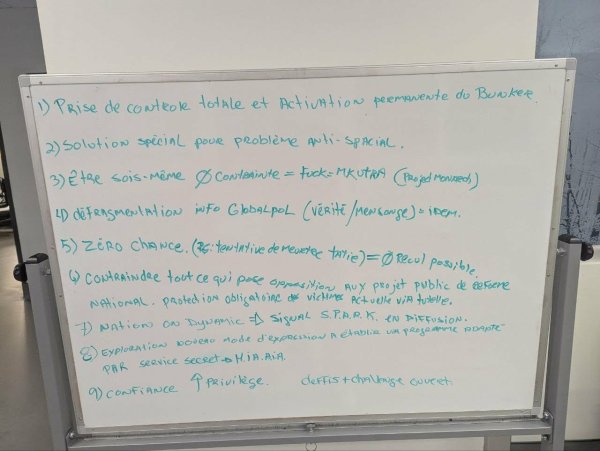 1) Prise de contrôle totale et Activation permanente du Bunker.
2) Solution spécial pour problème anti-spacial.
3) Être sois-même Ø contrainte = Fuck = MKUTRA (Projed Monarch)
4) défragmentation info GlobalpoL (vérité/mensonge) = idem.
5) Zéro chance. (tentative de meurtre) = Ø recul possible.
6) Contraindre tout ce qui pose opposition aux projet public de reforme
national. protection obligatoire de victimes actuelle via tutelle.
7) Nation on Dynamic => Signal S.P.A.R.K. en diffusion.
8) Exploration nouveau mode d'expression à établir un programme adapté
par service secret M.IA.AiA
9) Confiance ↑ privilège. deffis + challenge ouvert.